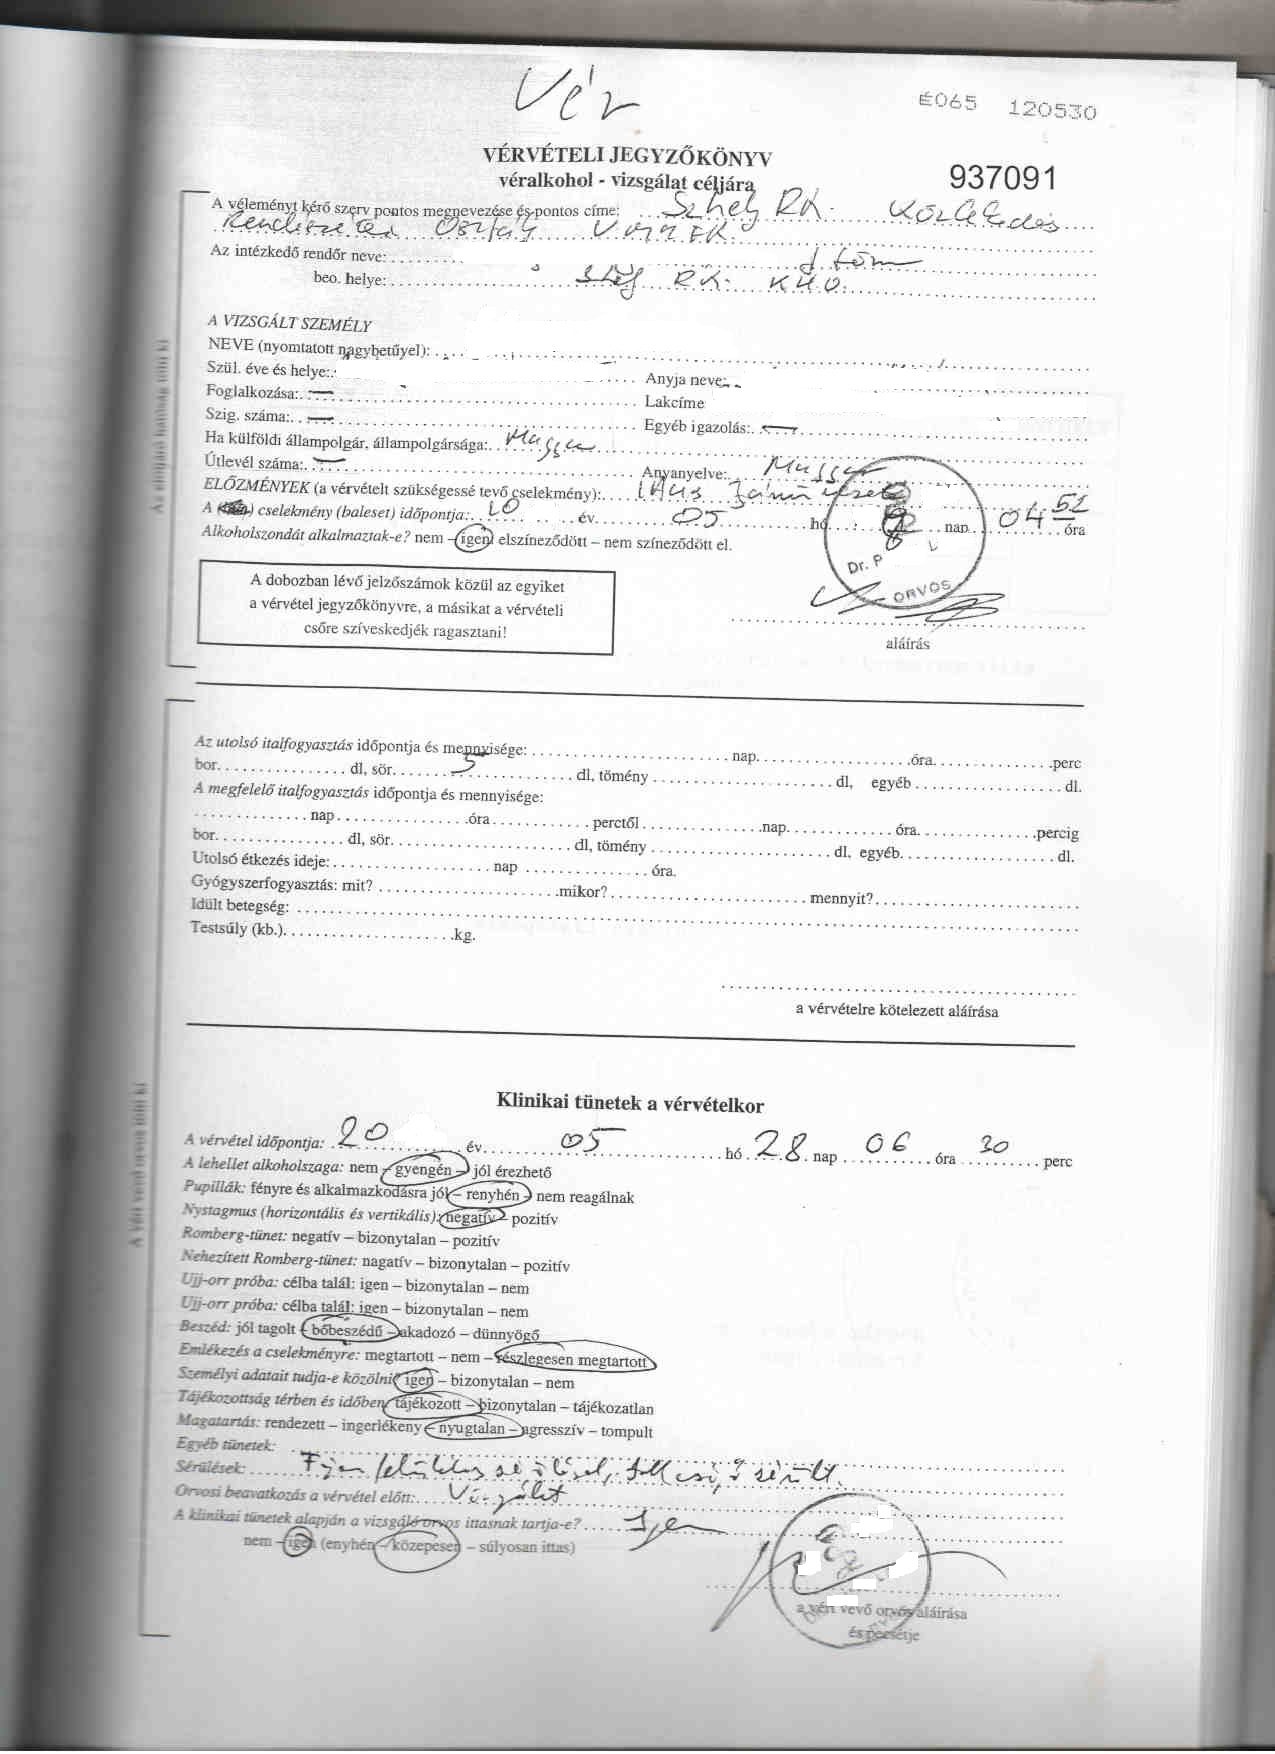 Vér
E065 120530
VÉRVÉTELI JEGYZŐKÖNYV
véralkohol - vizsgálat céljára
937091
A véleményt kérő szerv pontos megnevezése és pontos címe: Szhely RK. Közlekedés
Rendészeti Osztály
Az intézkedő rendőr neve: törm
beo. helye: RK. KHO.
A VIZSGÁLT SZEMÉLY
NEVE (nyomtatott nagybetűyel):
Szül. éve és helye: Anyja neve:
Foglalkozása: — Lakcíme
Szig. száma: — Egyéb igazolás: —
Ha külföldi állampolgár, állampolgársága: Magyar
Útlevél száma: — Anyanyelve: Magyar
ELŐZMÉNYEK (a vérvételt szükségessé tevő cselekmény): Ittas járművezetés
A cselekmény (baleset) időpontja: 20 év 05 hó nap 04 52 óra
Alkoholszondát alkalmaztak-e? nem – igen elszíneződött – nem színeződött el.
Dr. P L
ORVOS
A dobozban lévő jelzőszámok közül az egyiket
a vérvétel jegyzőkönyvre, a másikat a vérvételi
csőre szíveskedjék ragasztani!
aláírás
Az utolsó italfogyasztás időpontja és mennyisége: nap. óra. perc
bor. dl, sör. 5 dl, tömény dl, egyéb dl.
A megfelelő italfogyasztás időpontja és mennyisége:
nap óra perctől nap. óra. percig
bor. dl, sör. dl, tömény dl, egyéb. dl.
Utolsó étkezés ideje: nap óra.
Gyógyszerfogyasztás: mit? mikor? mennyit?
Idült betegség:
Testsúly (kb.). kg.
a vérvételre kötelezett aláírása
Klinikai tünetek a vérvételkor
A vérvétel időpontja: 20 év. 05 hó 28. nap 06 óra 30 perc
A lehellet alkoholszaga: nem – gyengén – jól érezhető
Pupillák: fényre és alkalmazkodásra jól – renyhén – nem reagálnak
Nystagmus (horizontális és vertikális): negatív – pozitív
Romberg-tünet: negatív – bizonytalan – pozitív
Nehezített Romberg-tünet: nagatív – bizonytalan – pozitív
Ujj-orr próba: célba talál: igen – bizonytalan – nem
Ujj-orr próba: célba talál: igen – bizonytalan – nem
Beszéd: jól tagolt – bőbeszédű – akadozó – dünnyögő
Emlékezés a cselekményre: megtartott – nem – részlegesen megtartott
Személyi adatait tudja-e közölni? igen – bizonytalan – nem
Tájékozottság térben és időben: tájékozott – bizonytalan – tájékozatlan
Magatartás: rendezett – ingerlékeny – nyugtalan – agresszív – tompult
Egyéb tünetek:
Sérülések: sérült.
Orvosi beavatkozás a vérvétel előtt: Vizsgálat
A klinikai tünetek alapján a vizsgáló orvos ittasnak tartja-e? Igen
nem – igen (enyhén – közepesen – súlyosan ittas)
a vért vevő orvos aláírása
és pecsétje